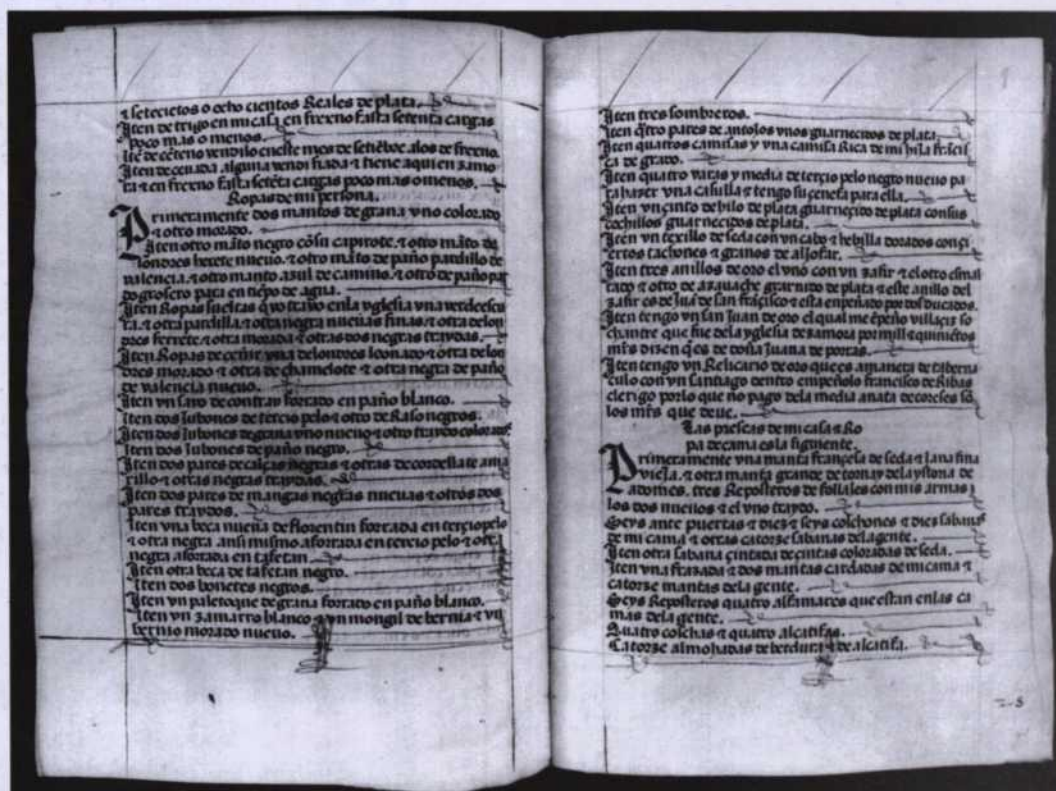 ⁊ setecie̅tos o ocho cientos Reales de plata.
Iten de trigo en mi casa en frexno fasta setenta cargas
poco mas o menos.
Ite̅ de ce̅teno vendilo eneste mes de setie̅bre. alos de frexno.
Iten de ceuada. alguna vendi fiada ⁊ tiene aqui en zamo
ra ⁊ en frexno fasta sete̅ta cargas poco mas o menos.
Ropas de mi persona.
Primeramente dos mantos de grana. vno colorado
⁊ otro morado.
Iten otro ma̅to negro co̅su capirote. ⁊ otro ma̅to de
londres herete nueuo. ⁊ otro ma̅to de paño pardillo de
valencia. ⁊ otro manto azul de camino. ⁊ otro de paño par
do grosero para en tie̅po de agua.
Iten Ropas sueltas q̅ yo trayo enla yglesia vna verdescu
ra. ⁊ otra pardilla. ⁊ otra negra nueuas finas. ⁊ otra delon
dres ferrete ⁊ otra morada ⁊ otras dos negras traydas.
Iten Ropas de ceñir vna delondres leonado ⁊ otra delon
dres morado ⁊ otra de chamelote ⁊ otra negra de paño
de valencia nueuo.
Iten vn sayo de contray forrado en paño blanco.
Iten dos Jubones de tercio pelo ⁊ otro de Raso negros.
Iten dos Jubones de grana vno nueuo ⁊ otro traydo colorados
Iten dos Jubones de paño negro.
Iten dos pares de calças negras ⁊ otras de cordellate ama
rillo ⁊ otras negras traydas.
Iten dos pares de mangas negras nueuas ⁊ otros dos
pares traydos.
Iten vna beca nueua de florentin forrada en tercio pelo
⁊ otra negra ansi mismo aforrada en tercio pelo ⁊ otra
negra aforrada en tafetan
Iten otra beca de tafetan negro.
Iten dos bonetes negros.
Iten vn paletoque de grana forrado en paño blanco.
Iten vn zamarro blanco ⁊ vn mongil de bernia ⁊ vn
bernio morado nueuo.
Iten tres sombreros.
Iten q̅tro pares de antojos vnos guarnecidos de plata
Iten quatros camisas y vna camisa Rica de mi hila fra̅cis
ca de grado.
Iten quatro varas y media de tercio pelo negro nueuo pa
ra hazer vna casulla ⁊ tengo su çenefa para ella.
Iten vn çinto de hilo de plata guarneçido de plata con sus
cochillos guarnecidos de plata.
Iten vn texillo de seda con vn cabo ⁊ hebilla dorados con çi
ertos tachones ⁊ granos de aljofar.
Iten tres anillos de oro el vno con vn zafir ⁊ el otro esmal
tado ⁊ otro de azauache guarnido de plata ⁊ este anillo del
zafir es de Jua̅ de san fra̅çisco ⁊ esta enpeñado por dos ducados.
Iten tengo vn san Juan de oro el qual me e̅peño villaçis so
chantre que fue dela yglesia de zamora por mill ⁊ quinie̅tos
mr̅s dizen q̅ es de doña Juana de porras.
Iten tengo vn Relicario de oro que es amanera de taberna
culo con vn santiago dentro enpeñolo francisco de Ribas
clerigo por lo que no pago dela media anata de coreses so̅
los mr̅s que deue.
Las preseas de mi casa ⁊ Ro
pa de cama es la siguiente.
Primeramente vna manta françesa de seda ⁊ lana fina
vieja. ⁊ otra manta grande de tornay dela ystoria de
adomes. tres Reposteros de follajes con mis armas
los dos nueuos ⁊ el vno traydo.
Seys ante puertas ⁊ diez ⁊ seys colchones ⁊ diez sabanas
de mi cama ⁊ otras catorze sabanas dela gente.
Iten otra sabana çintada de çintas coloradas de seda.
Iten vna frazada ⁊ dos mantas cardadas de mi cama ⁊
catorze mantas dela gente.
Seys Reposteros quatro alfamares que estan enlas ca
mas dela gente.
Quatro colchas ⁊ quatro alcatifas.
Catorze almohadas de berdura ⁊ de alcatifa.